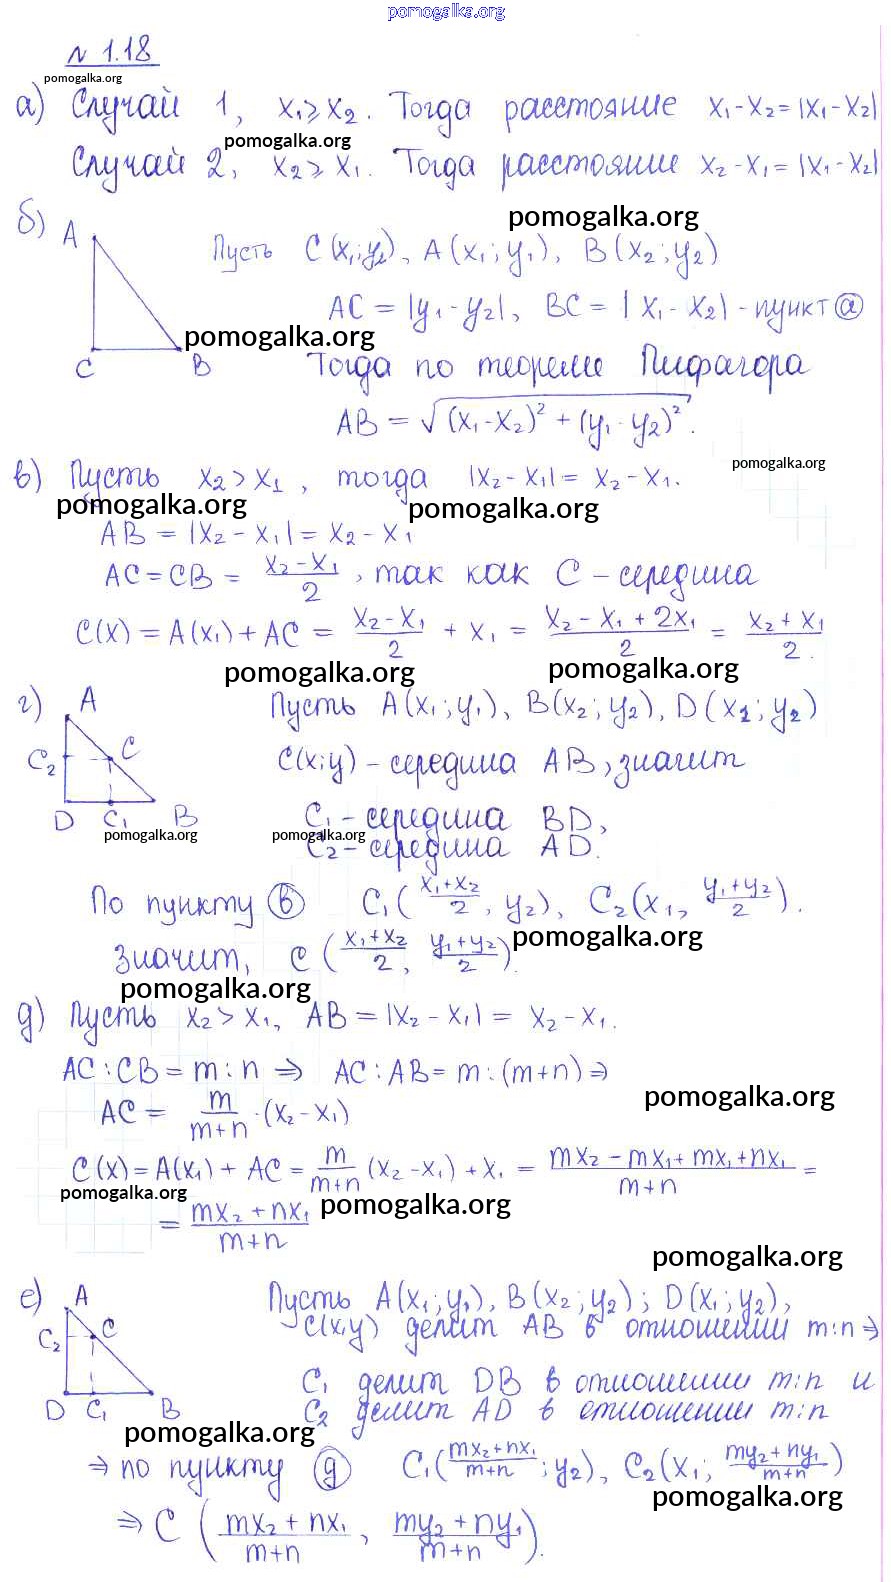 pomogalka.org
N 1.18
pomogalka.org
а) Случай 1, x₁⩾x₂. Тогда расстояние x₁-x₂=|x₁-x₂|
pomogalka.org
Случай 2, x₂⩾x₁. Тогда расстояние x₂-x₁=|x₁-x₂|
pomogalka.org
б) A Пусть C(x₁;y₂), A(x₁;y₁), B(x₂;y₂)
AC=|y₁-y₂|, BC=|x₁-x₂| - пункт (а)
pomogalka.org
C B Тогда по теореме Пифагора
AB=√((x₁-x₂)²+(y₁-y₂)²).
pomogalka.org
в) Пусть x₂>x₁, тогда |x₂-x₁|=x₂-x₁.
pomogalka.org pomogalka.org
AB=|x₂-x₁|=x₂-x₁
AC=CB=(x₂-x₁)/2, так как C - середина
C(x)=A(x₁)+AC=(x₂-x₁)/2+x₁=(x₂-x₁+2x₁)/2=(x₂+x₁)/2.
pomogalka.org pomogalka.org
г) A Пусть A(x₁;y₁), B(x₂;y₂), D(x₁;y₂)
C₂ C C(x;y) - середина AB, значит
D C₁ B C₁ - середина BD,
pomogalka.org pomogalka.org
C₂ - середина AD.
По пункту (в) C₁((x₁+x₂)/2, y₂), C₂(x₁, (y₁+y₂)/2).
pomogalka.org
Значит, C((x₁+x₂)/2, (y₁+y₂)/2).
pomogalka.org
д) Пусть x₂>x₁, AB=|x₂-x₁|=x₂-x₁.
AC:CB=m:n ⇒ AC:AB=m:(m+n)⇒
pomogalka.org
AC=m/(m+n)·(x₂-x₁)
C(x)=A(x₁)+AC=m/(m+n)(x₂-x₁)+x₁=(mx₂-mx₁+mx₁+nx₁)/(m+n)=
pomogalka.org pomogalka.org
=(mx₂+nx₁)/(m+n)
pomogalka.org
е) A Пусть A(x₁;y₁), B(x₂;y₂); D(x₁;y₂),
C₂ C C(x;y) делит AB в отношении m:n⇒
C₁ делит DB в отношении m:n и
D C₁ B C₂ делит AD в отношении m:n
pomogalka.org
⇒ по пункту (д) C₁((mx₂+nx₁)/(m+n);y₂), C₂(x₁;(my₂+ny₁)/(m+n))
pomogalka.org
⇒ C((mx₂+nx₁)/(m+n), (my₂+ny₁)/(m+n)).